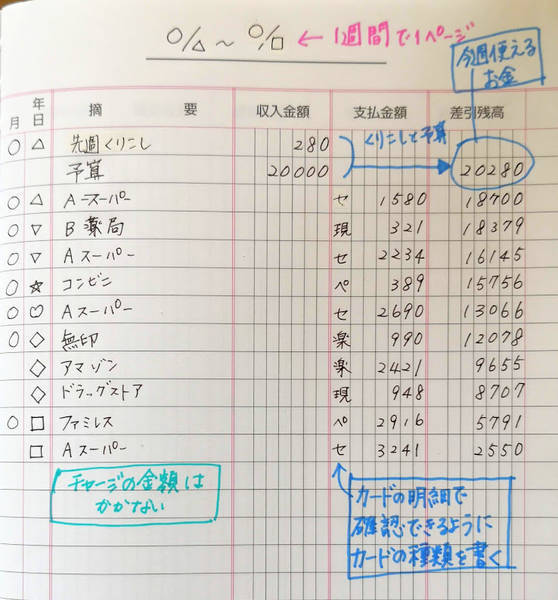 ○/△ ～ ○/□ ← 1週間で1ページ
今週使える
お金
月 年日 摘 要 収入金額 支払金額 差引残高
○ △ 先週くりこし 280 くりこしと予算
予算 20000 20280
○ △ Aスーパー セ 1580 18700
○ ▽ B薬局 現 321 18379
○ ▽ Aスーパー セ 2234 16145
○ ☆ コンビニ ペ 389 15756
○ ♡ Aスーパー セ 2690 13066
○ ◇ 無印 楽 990 12078
◇ アマゾン 楽 2421 9655
◇ ドラッグストア 現 948 8707
○ □ ファミレス ペ 2916 5791
□ Aスーパー セ 3241 2550
チャージの金額は
かかない
カードの明細で
確認できるように
カードの種類を書く